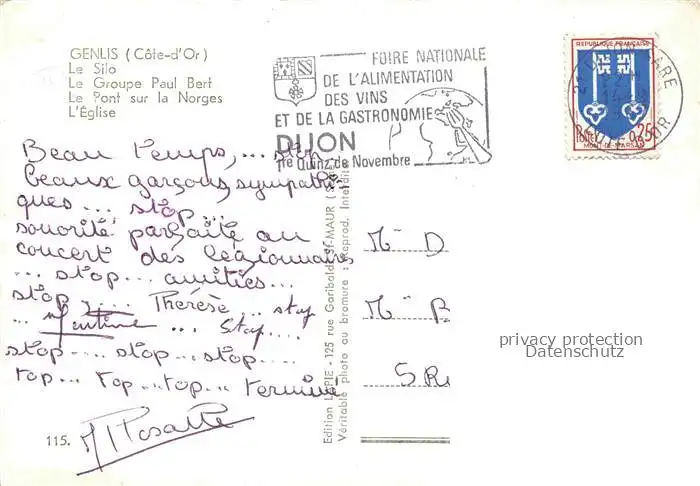 GENLIS (Côte-d'Or)
Le Silo
Le Groupe Paul Bert
Le Pont sur la Norges
L'Église
FOIRE NATIONALE
DE L'ALIMENTATION
DES VINS
ET DE LA GASTRONOMIE
DIJON
1re Quinz. de Novembre
REPUBLIQUE FRANÇAISE
0,25
MONT-DE-MARSAN
Beau temps, ... stop
beaux garçons, sympathi
ques ... stop ...
sonorité parfaite au
concert des légionnaires
... stop ... amitiés ...
stop ... Thérèse ... stop
... Martine ... Stop ....
stop ... stop ... stop ....
top ... top ... top ... terminé
115.
Edition LAPIE - 125 rue Garibaldi St-MAUR
Véritable photo au bromure : Reprod. Interdite
M D
M
S R
privacy protection
Datenschutz